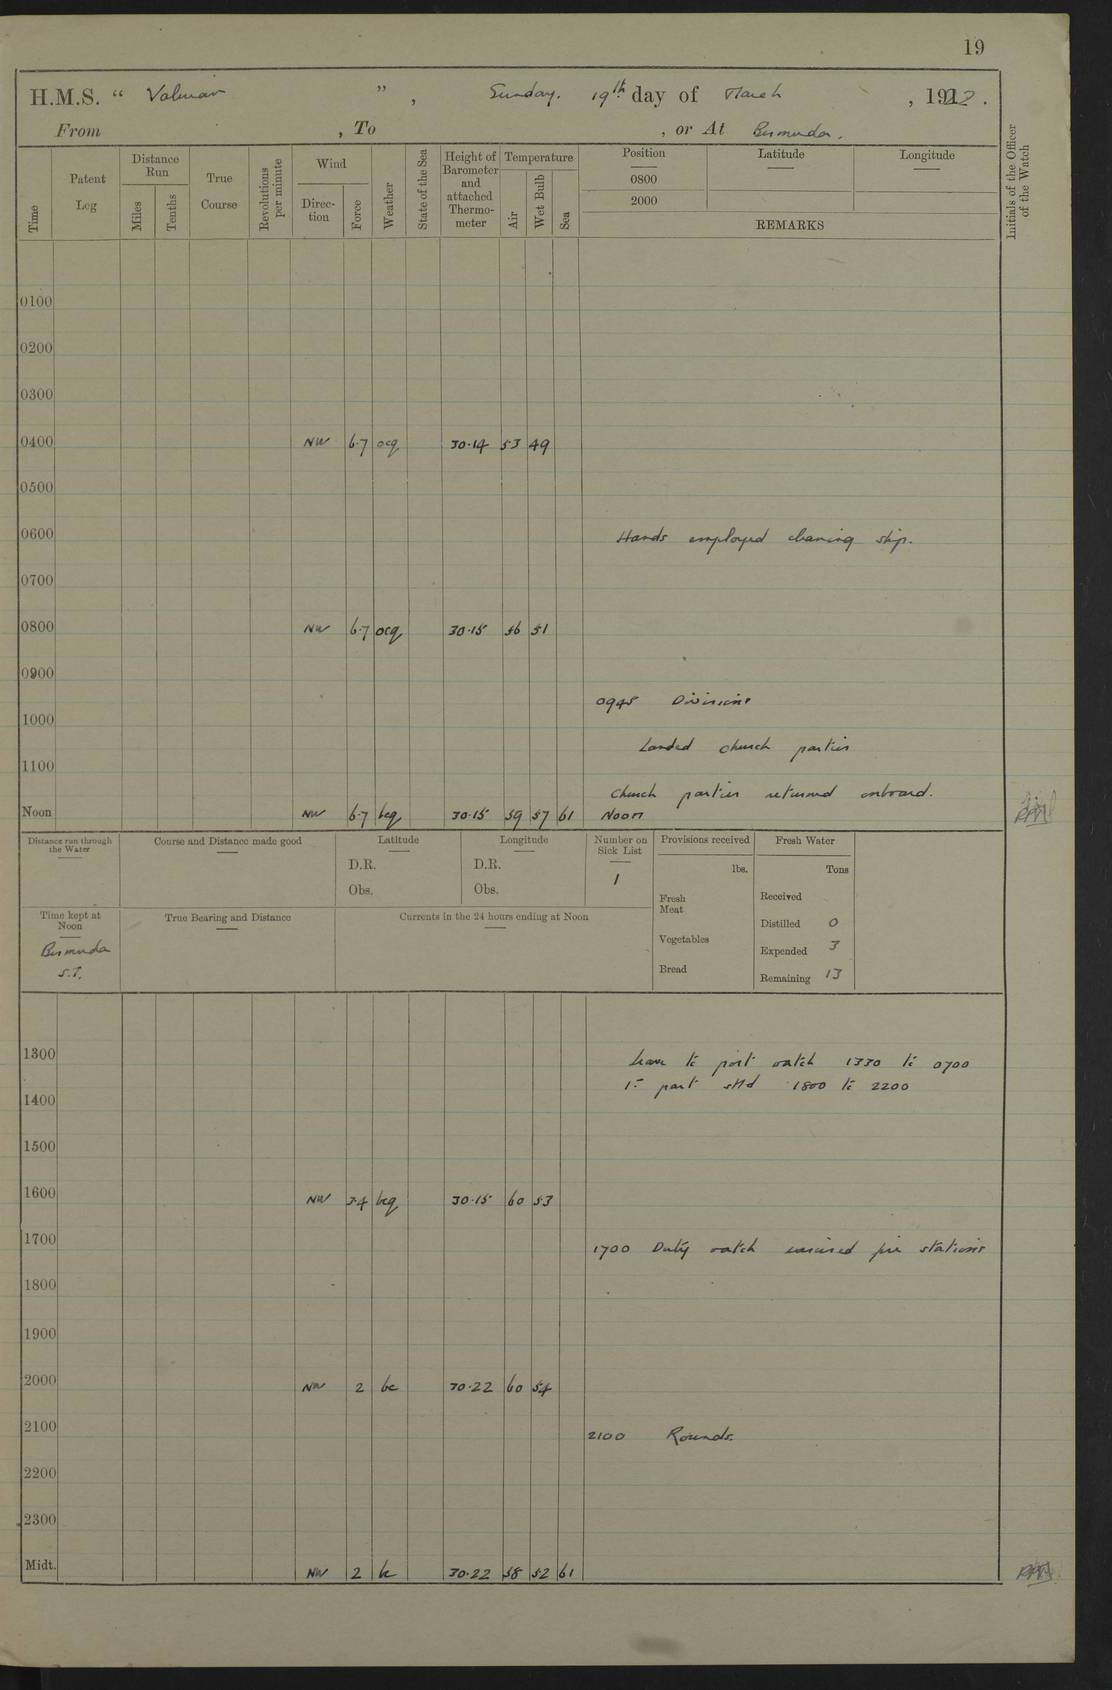 19
H.M.S. “ Valerian ” , Sunday. 19th day of March , 1922.
From , To , or At Bermuda.
Time
Patent Log
Distance Run
Miles
Tenths
True Course
Revolutions per minute
Wind
Direc-tion
Force
Weather
State of the Sea
Height of Barometer and attached Thermo-meter
Temperature
Air
Wet Bulb
Sea
Position
0800
2000
Latitude
Longitude
REMARKS
Initials of the Officer of the Watch
0100
0200
0300
0400 NW 6.7 ocq 30.14 53 49
0500
0600 Hands employed cleaning ship.
0700
0800 NW 6.7 ocq 30.15 56 51
0900
0945 Divisions
1000
Landed church parties
1100
Church parties returned onboard.
Noon NW 6.7 bcq 30.15 59 57 61 Noon
Distance run through the Water
Course and Distance made good
Latitude
D.R.
Obs.
Longitude
D.R.
Obs.
Number on Sick List
1
Provisions received
lbs.
Fresh Meat
Vegetables
Bread
Fresh Water
Tons
Received
Distilled 0
Expended 3
Remaining 13
Time kept at Noon
Bermuda
S.T.
True Bearing and Distance
Currents in the 24 hours ending at Noon
1300 leave to port watch 1330 to 0700
1st part stbd 1800 to 2200
1400
1500
1600 NW 3.4 bcq 30.15 60 53
1700 1700 Duty watch exercised fire stations
1800
1900
2000 NW 2 bc 30.22 60 54
2100 2100 Rounds.
2200
2300
Midt. NW 2 bc 30.22 58 52 61